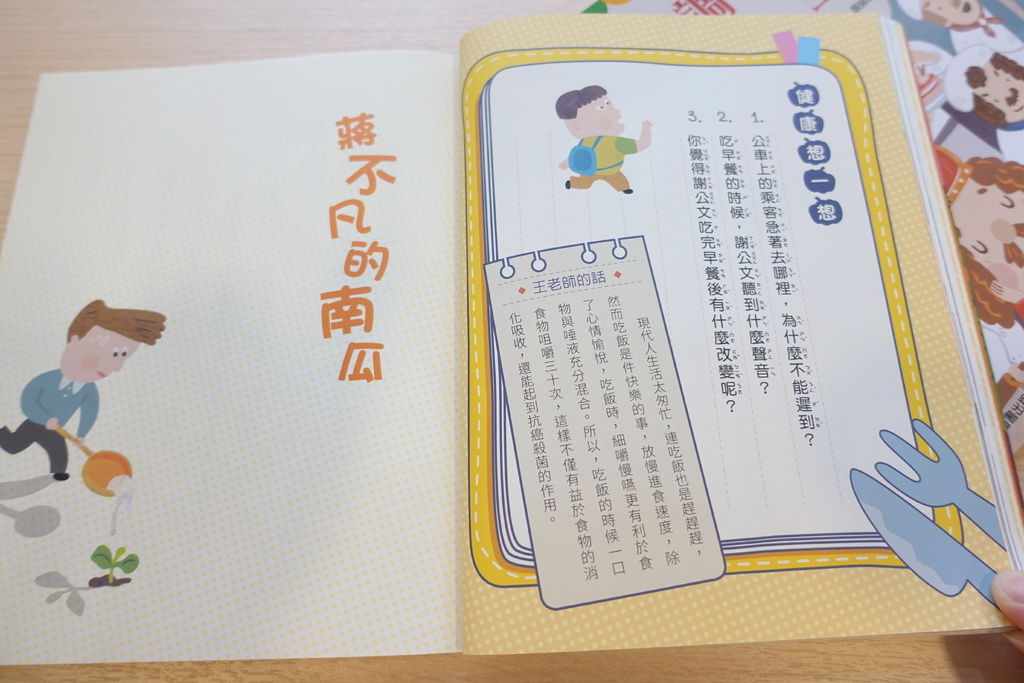 健康想一想
1. 公車上的乘客急著去哪裡，為什麼不能遲到？
2. 吃早餐的時候，謝公文聽到什麼聲音？
3. 你覺得謝公文吃完早餐後有什麼改變呢？
王老師的話
現代人生活太匆忙，連吃飯也是趕趕趕，
然而吃飯是件快樂的事，放慢進食速度，除
了心情愉悅，吃飯時，細嚼慢嚥更有利於食
物與唾液充分混合。所以，吃飯的時候一口
食物咀嚼三十次，這樣不僅有益於食物的消
化吸收，還能起到抗癌殺菌的作用。
蔣不凡的南瓜